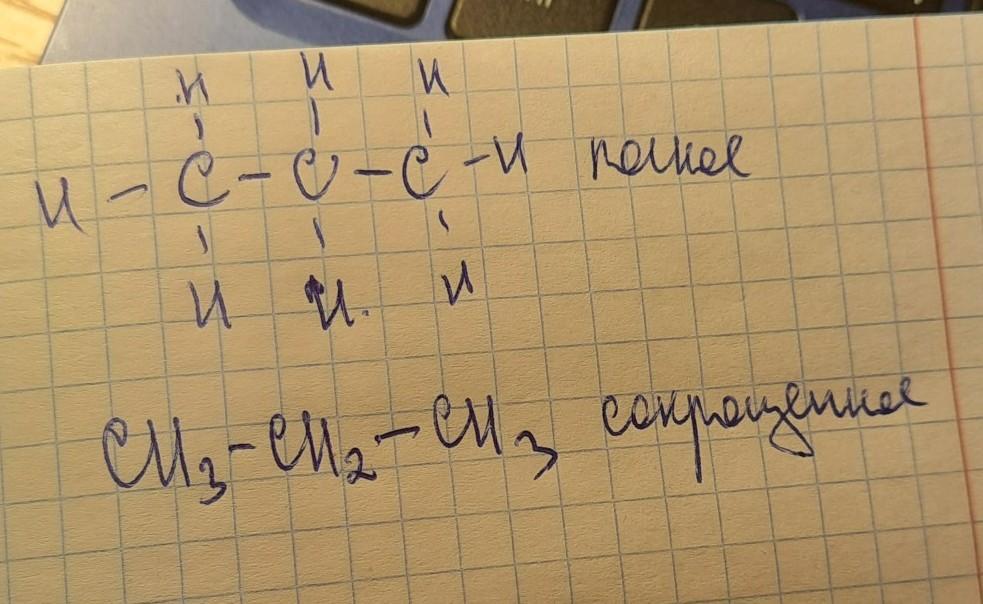 H H H
H - C - C - C - H полное
H H H
CH3 - CH2 - CH3 сокращенное